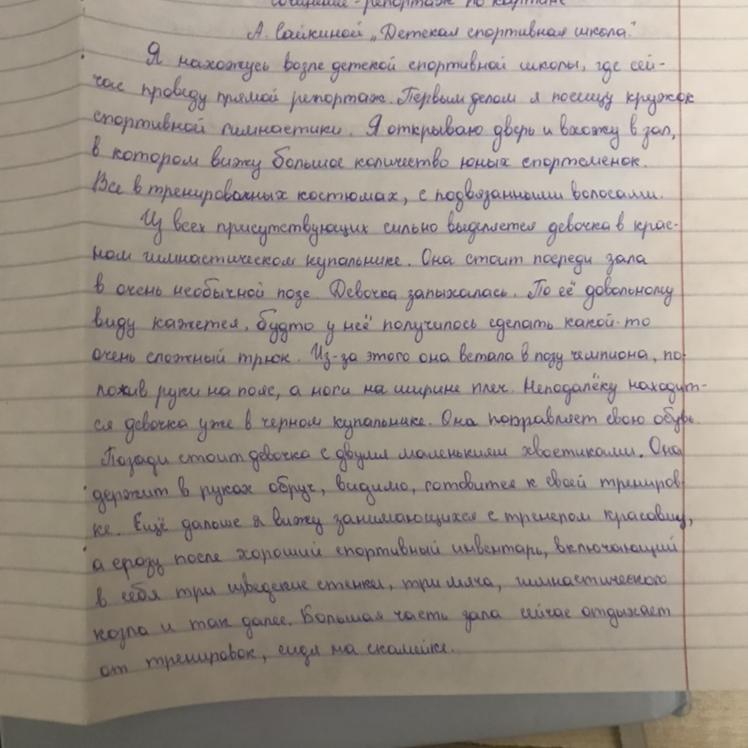 сочинение-репортаж по картине
А. Сайкиной „Детская спортивная школа."
Я нахожусь возле детской спортивной школы, где сей-
час проведу прямой репортаж. Первым делом я посещу кружок
спортивной гимнастики. Я открываю дверь и вхожу в зал,
в котором вижу большое количество юных спортсменок.
Все в тренировочных костюмах, с подвязанными волосами.
Из всех присутствующих сильно выделяется девочка в крас-
ном гимнастическом купальнике. Она стоит посреди зала
в очень необычной позе. Девочка запыхалась. По её довольному
виду кажется, будто у неё получилось сделать какой-то
очень сложный трюк. Из-за этого она встала в позу чемпиона, по-
ложив руки на пояс, а ноги на ширине плеч. Неподалёку находит-
ся девочка уже в черном купальнике. Она поправляет свою обувь.
Позади стоит девочка с двумя маленькими хвостиками. Она
держит в руках обруч, видимо, готовится к своей трениров-
ке. Ещё дальше я вижу занимающихся с тренером красавиц,
а сразу после хороший спортивный инвентарь, включающий
в себя три шведские стенки, три мяча, гимнастического
козла и так далее. Большая часть зала сейчас отдыхает
от тренировок, сидя на скамейке.